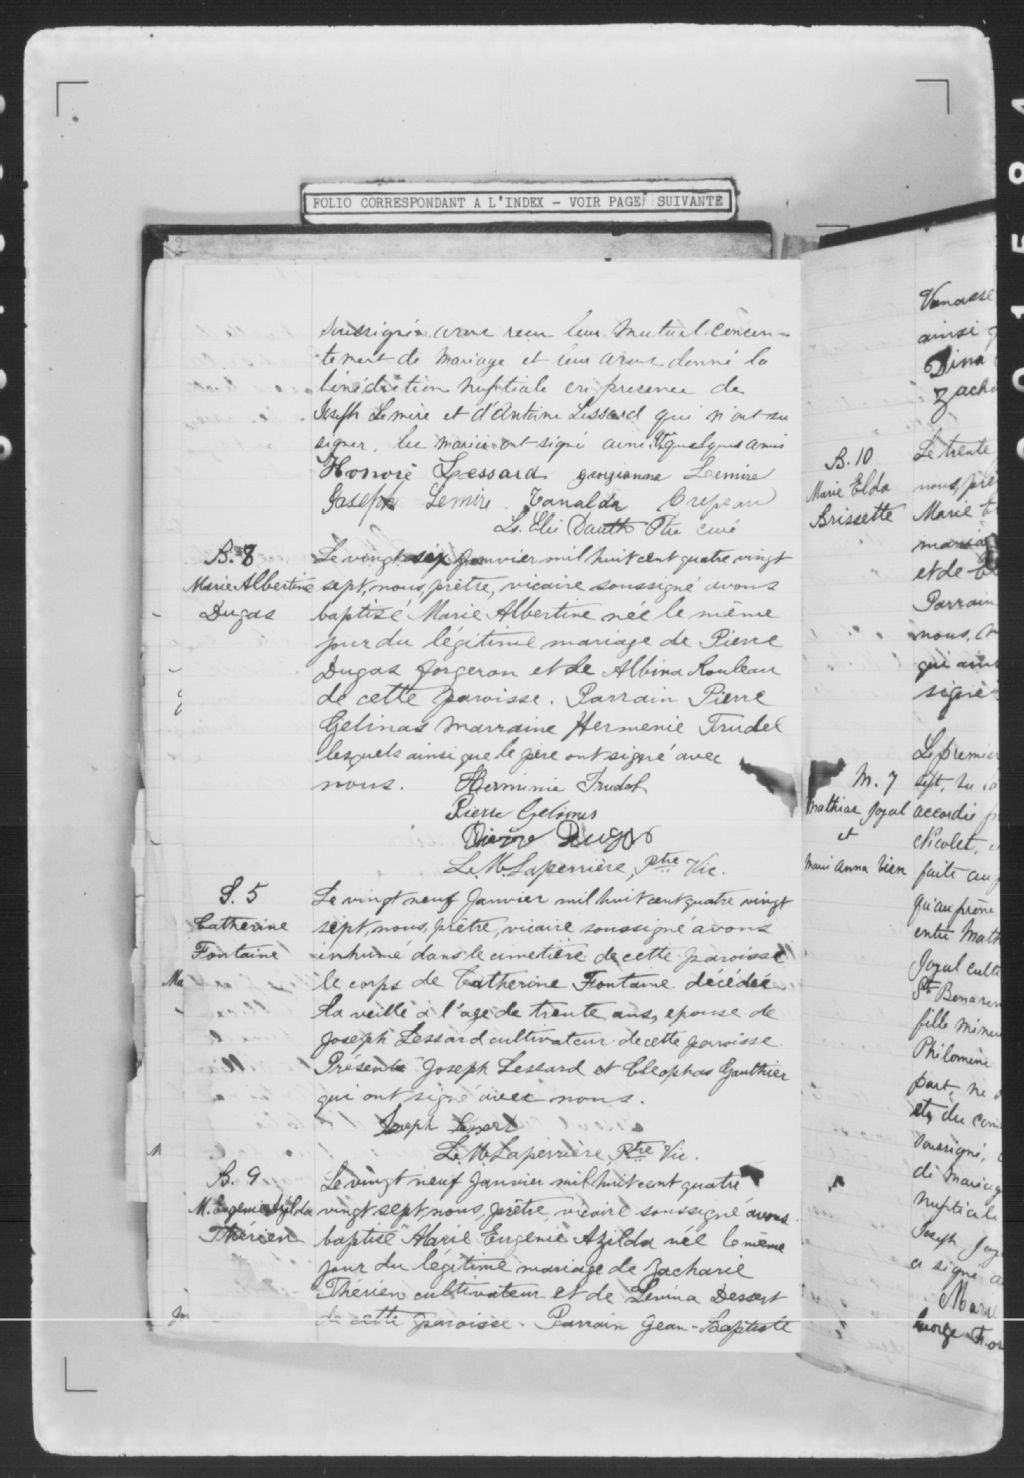 FOLIO CORRESPONDANT A L'INDEX - VOIR PAGE SUIVANTE
soussigné avons reçu leur mutuel consen-
tement de mariage et leur avons donné la
bénédiction nuptiale en presence de
Joseph Lemire et d'Antoine Lessard qui n'ont su
signer. les mariés ont signé ainsi que quelques amis
Honoré Lessard georgianna Lemire
Joseph Lemire Crepeau
Ls. Elie Dauth Ptre curé
B. 8
Marie Albertine
Dugas
Le vingt six Janvier mil huit cent quatre vingt
sept, nous, prêtre, vicaire soussigné avons
baptisé Marie Albertine née le même
jour du légitime mariage de Pierre
Dugas forgeron et de Albina Rouleau
de cette paroisse. Parrain Pierre
Gelinas marraine Hermenie Trudel
lesquels ainsi que le père ont signé avec
nous. Herminie Trudel
Pierre Gelinas
Pierre Dugas
L. M. Laperrière, Ptre Vic.
S. 5
Catherine
Fontaine
Le vingt neuf Janvier mil huit cent quatre vingt
sept, nous, prêtre, vicaire soussigné avons
inhumé dans le cimetière de cette paroisse
le corps de Catherine Fontaine décédée
la veille à l'age de trente ans, epouse de
Joseph Lessard cultivateur de cette paroisse.
Présents Joseph Lessard et Cleophas Gauthier
qui ont signé avec nous.
Joseph
L. M. Laperrière, Ptre Vic.
B. 9
M. Eugenie Azilda
Thérien
Le vingt neuf Janvier mil huit cent quatre
vingt sept, nous, prêtre, vicaire soussigné avons
baptisé Marie Eugenie Azilda née le même
jour du légitime mariage de Zacharie
Thérien cultivateur et de Levina Dessert
de cette paroisse. Parrain Jean-Baptiste
Vanasse
ainsi
Dina
Zach
B. 10
Marie Elda
Brissette
Le trente
nous, prê
Marie E
maria
et de
Parrain
nous,
qui ain
signé
M. 7
Mathias Joyal
et
Marie Anna Vien
Le premier
sept,
accordée
Nicolet,
faite au
qu'au prône
entre Math
Joyal culti
St Bonaven
fille mineu
Philomène
part, ne
et, du con
soussigné,
de mariag
nuptiale
Joseph Joy
a signé
Marie
George